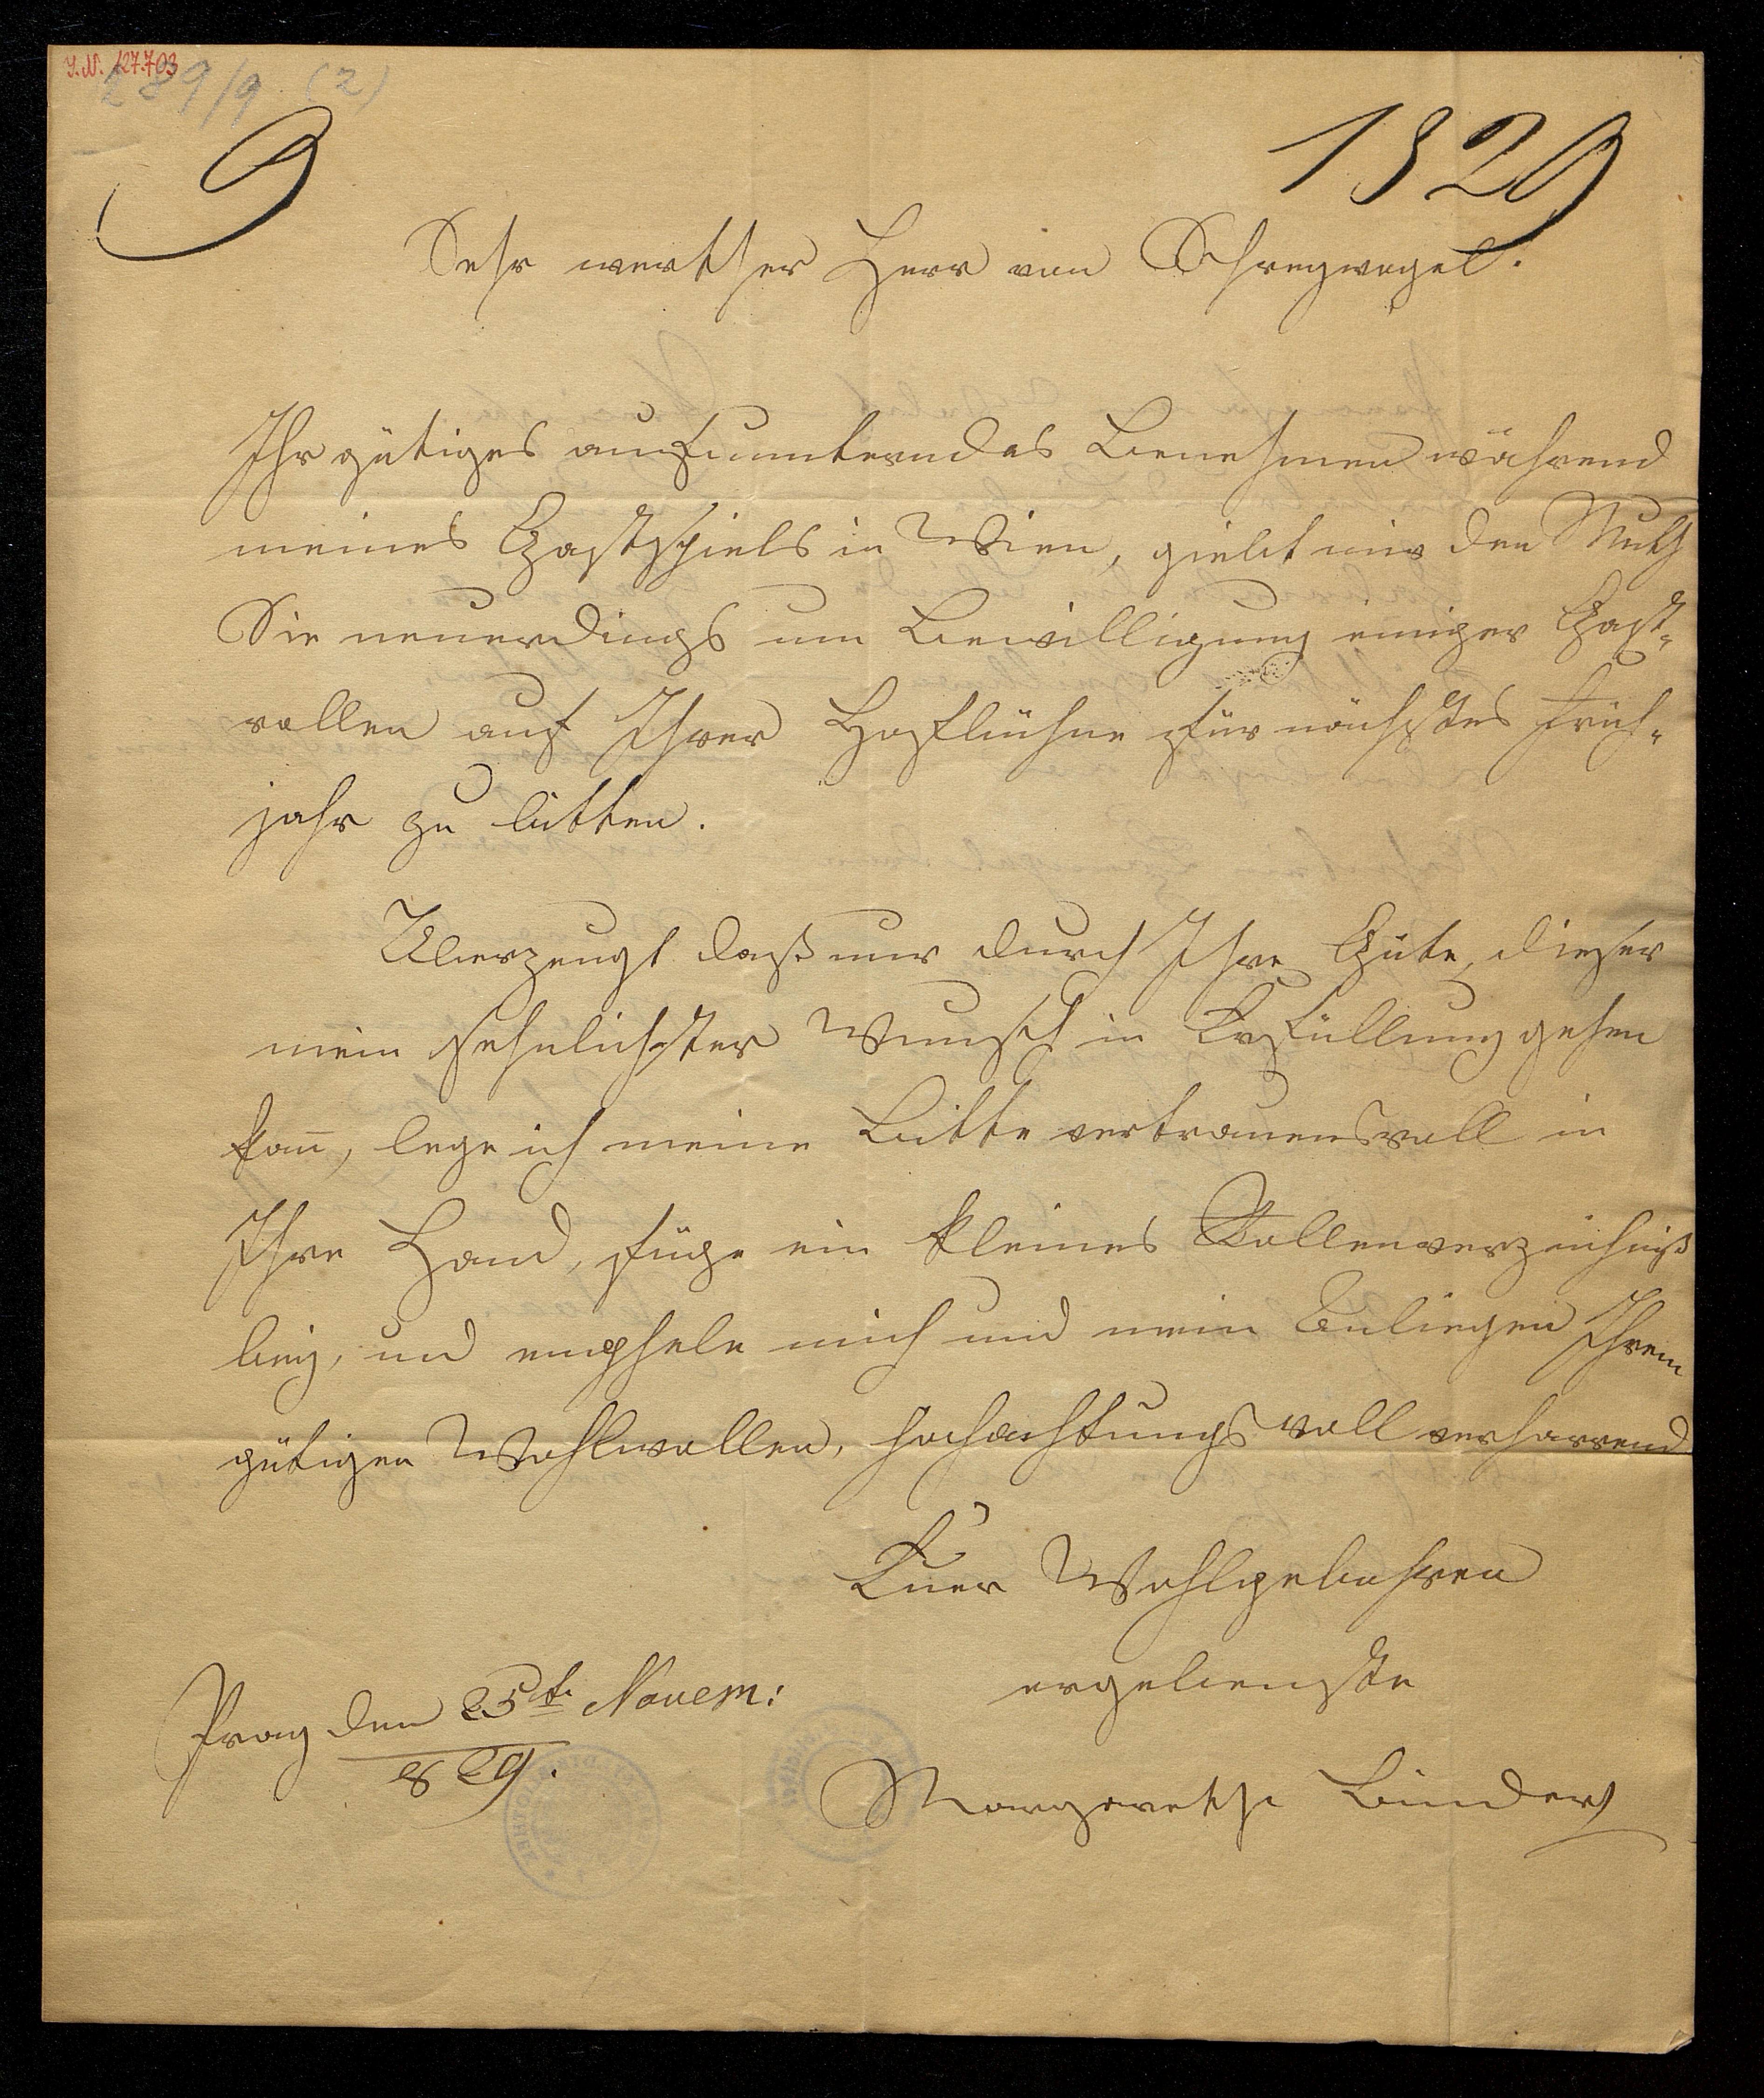 I.N. 127.703
289/9 (2)
9
1829
Sehr werther Herr von Schreyvogel.
Ihr gütiges aufmunterndes Benehmen während
meines Gastspiels in Wien, giebt mir den Muth
Sie neuerdings um Bewilligung einiger Gast-
rollen auf Ihrer Hofbühne für nächstes Früh-
jahr zu bitten.
Überzeugt daß nur durch Ihre Güte, dieser
mein sehnlichster Wunsch in Erfüllung gehen
kan̄, lege ich meine Bitte vertrauensvoll in
Ihre Hand, füge ein kleines Rollenverzeichniß
bey, und empfhele mich und mein Anliegen Ihrem
gütigen Wohlwollen, hochachtungsvoll verharrend
Euer Wohlgebohren
ergebenste
Prag den 25t. Novem:
829.
Margarethe Binder